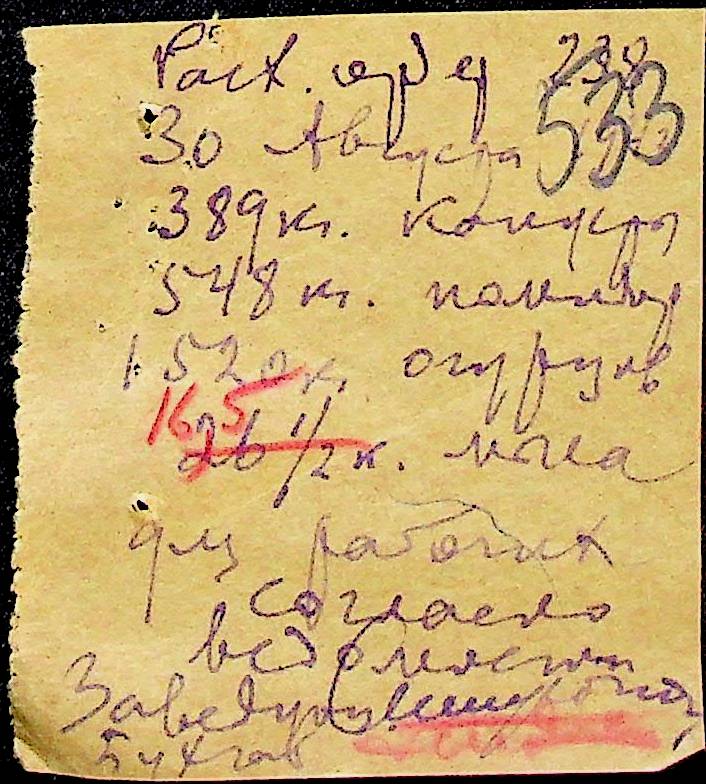 Расх. орд 238
533
30 Августа
389 кг. капусты
548 кг. помидор
1520 к. огурцов
165
26 1/2 к. мяса
для рабочих
согласно
ведомости
Заведующ
Бухгал